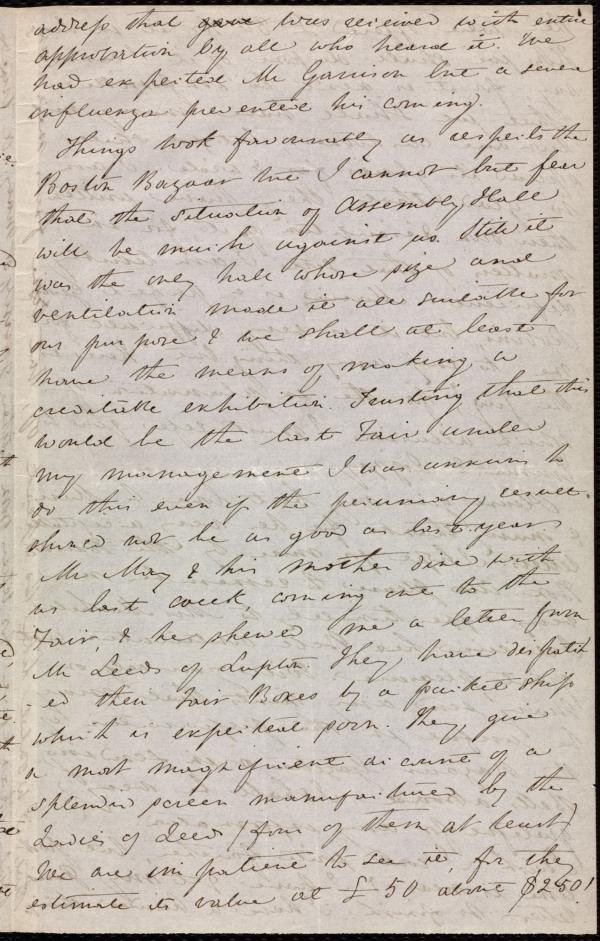 address that gave was received with entire
approbation by all who heard it. We
had expected Mr Garrison but a severe
influenza prevented his coming.
Things look favourably as respects the
Boston Bazaar but I cannot but fear
that the situation of Assembly Hall
will be much against us. Still it
was the only hall whose size and
ventilation made it all suitable for
our purpose & we shall at least
have the means of making a
creditable exhibition. Trusting that this
would be the last Fair under
my management I was anxious to
do this even if the pecuniary result
should not be as good as last years
Mr May & his mother dined with
us last week, coming out to the
Fair, & he shewed me a letter from
Mr Leeds of Lupton. They have dispatch
-ed their Fair Boxes by a packet ship
which is expected soon. They give
a most magnificent account of a
splendid screen manufactured by the
Ladies of Leeds (four of them at least)
We are impatient to see it, for they
estimate its value at £50 about $250!